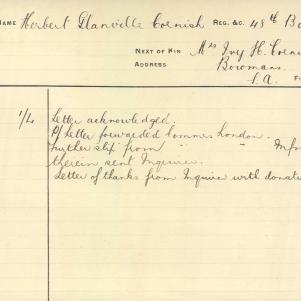 NAME Herbert Glanville Cornish REG. &C. 48th Ba
NEXT OF KIN Mrs Ivy H. Corni
ADDRESS Bowmans.
S.A. F
1/4 Letter acknowledged.
P/Letter forwarded Commrs London.
Further slip from " " Infor
therein sent Inquirer.
Letter of thanks from Inquirer with donati